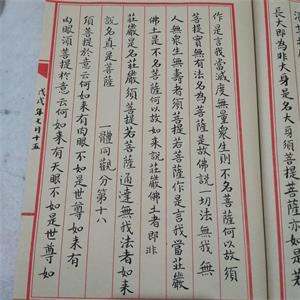 長大即為非大身是名大身須菩提菩薩亦如是若
作是言我當滅度無量眾生則不名菩薩何以故須
菩提實無有法名為菩薩是故佛說一切法無我無
人無眾生無壽者須菩提若菩薩作是言我當莊嚴
佛土是不名菩薩何以故如來說莊嚴佛土者即非
莊嚴是名莊嚴須菩提若菩薩通達無我法者如來
說名真是菩薩　一體同觀分第十八
須菩提於意云何如來有肉眼不如是世尊如來有
肉眼須菩提於意云何如來有天眼不如是世尊如
戊戌年七月十五